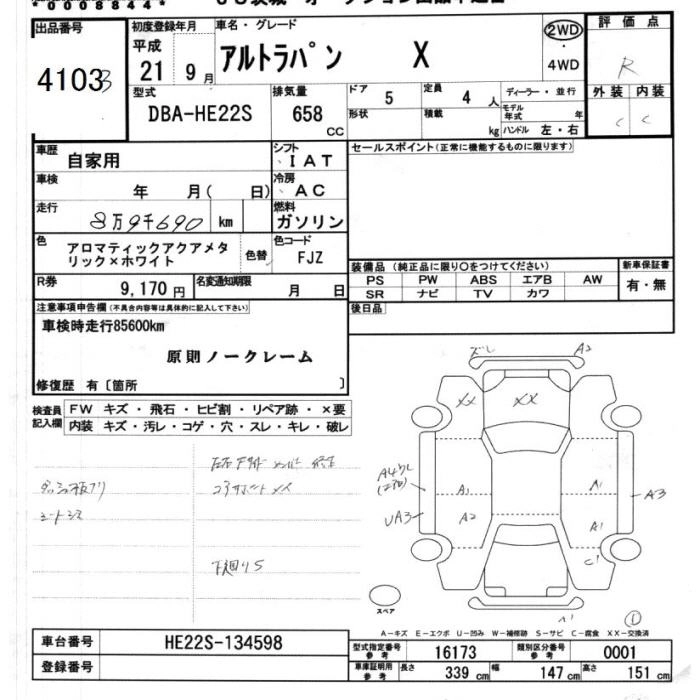 *0008844*
出品番号 初度登録年月 車名・グレード 2WD 評価点
41033 平成 21 9月 アルトラパン X 4WD R
型式 排気量 ドア 定員 ディーラー・並行 外装 内装
DBA-HE22S 658 CC 5 4人 モデル年式 年 C C
形状 積載 kg ハンドル 左・右
車歴 自家用 シフト IAT セールスポイント(正常に機能するものに限ります)
車検 年 月( 日) 冷房 AC
走行 8万9千690 km 燃料 ガソリン
色 アロマティックアクアメタ 色替 色コード
リック×ホワイト FJZ
装備品(純正品に限り○をつけてください) 新車保証書
R券 9,170円 名変通知期限 月 日 PS PW ABS エアB AW 有・無
SR ナビ TV カワ
注意事項申告欄(不具合内容等は具体的に記入して下さい) 後日品
車検時走行85600km
原則ノークレーム
修復歴 有〔箇所 〕
検査員 FW キズ・飛石・ヒビ割・リペア跡・×要
記入欄 内装 キズ・汚レ・コゲ・穴・スレ・キレ・破レ
ズレ A2
XX XX
A1 A1 A3
UA3 A2 A1
C1
スペア
A1 ①
A-キズ E-エクボ U-凹み W-補修跡 S-サビ C-腐食 XX-交換済
車台番号 HE22S-134598 型式指定番号 参考 16173 類別区分番号 参考 0001
登録番号 車庫証明用 参考 長さ 339 cm 幅 147 cm 高さ 151 cm